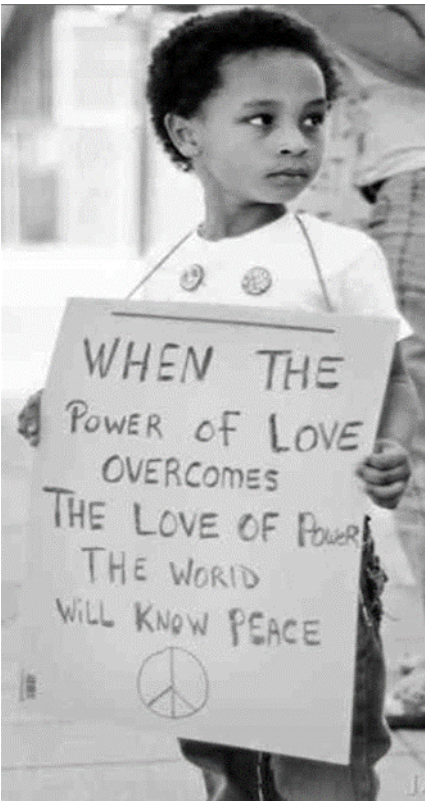 WHEN THE
POWER OF LOVE
OVERCOMES
THE LOVE OF POWER
THE WORLD
WILL KNOW PEACE